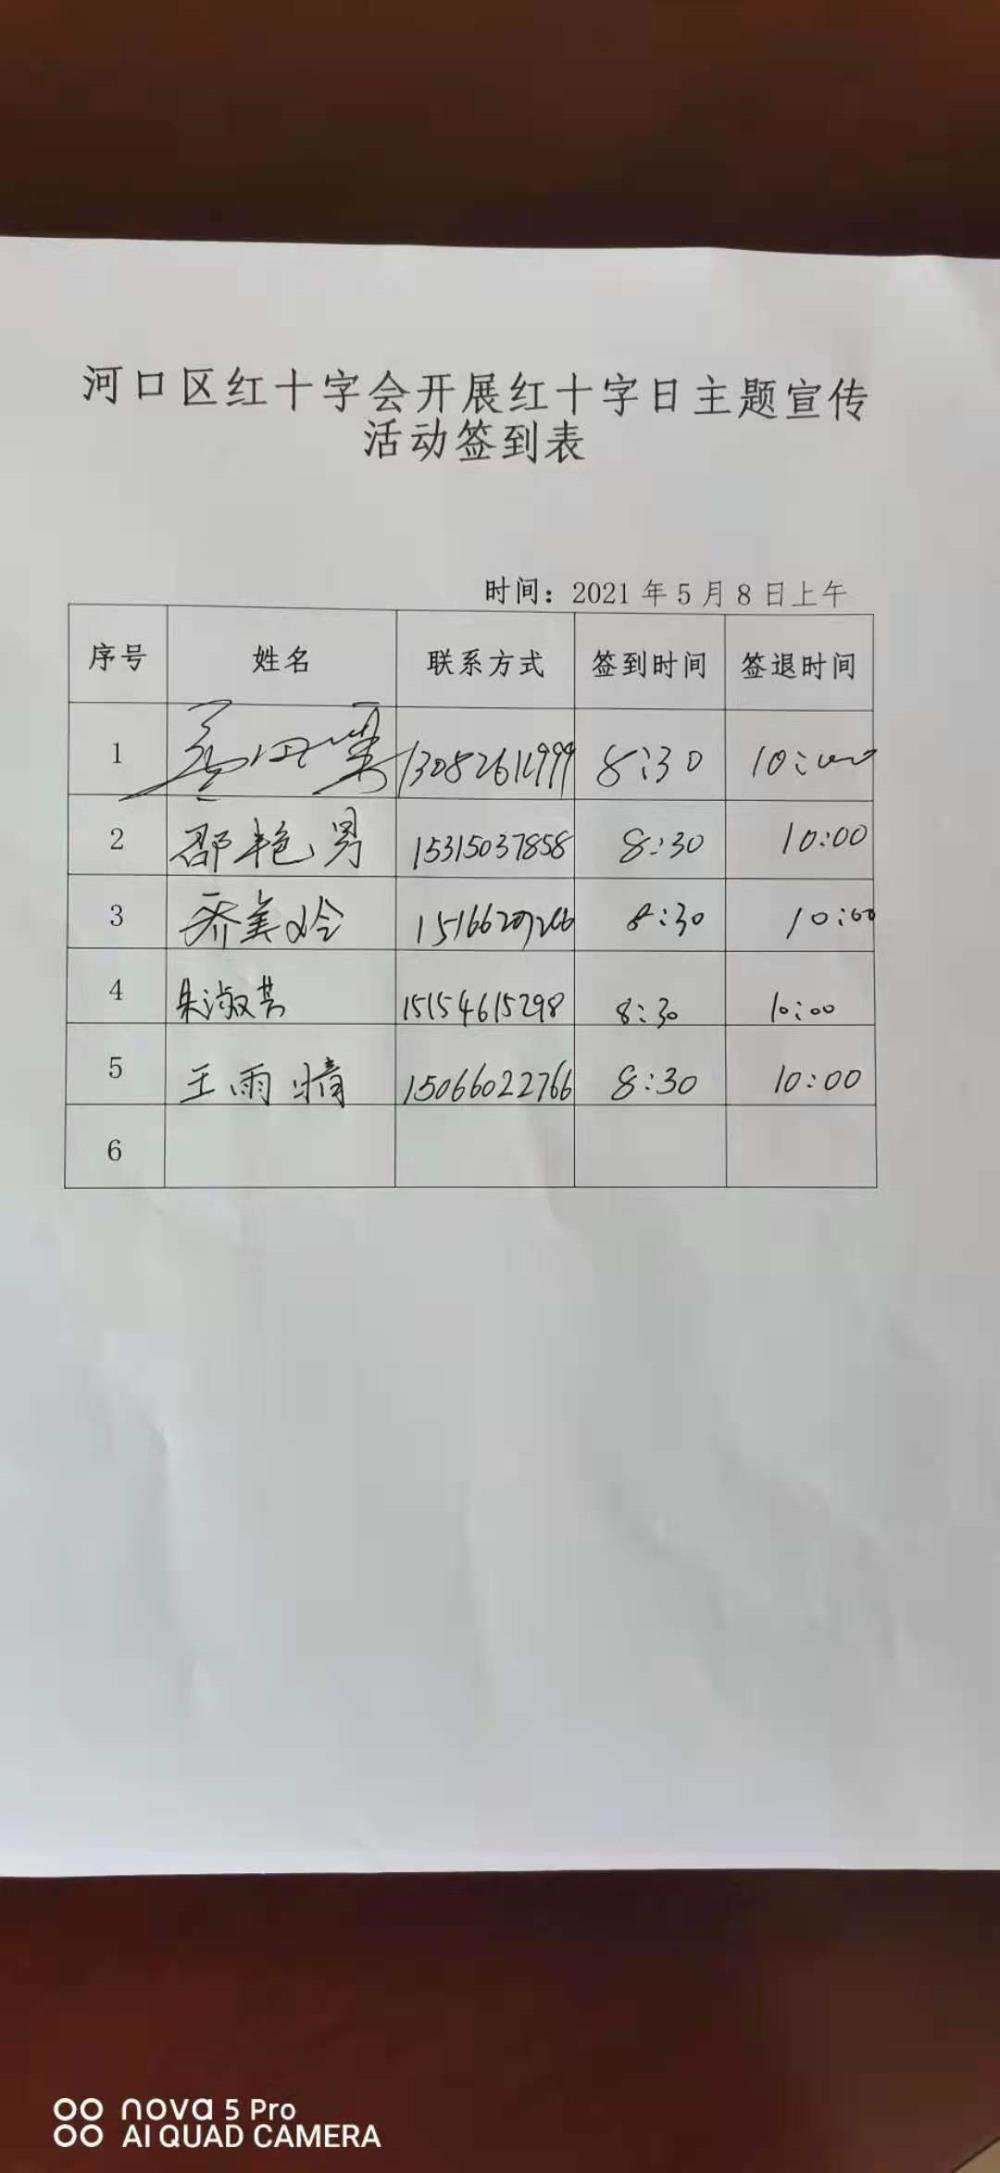 河口区红十字会开展红十字日主题宣传
活动签到表
时间：2021年5月8日上午
序号 姓名 联系方式 签到时间 签退时间
1 8:30 10:00
2 邵艳男 15315037858 8:30 10:00
3 乔美玲 8:30 10:00
4 朱淑芸 15154615298 8:30 10:00
5 王雨晴 15066022766 8:30 10:00
6
nova 5 Pro
AI QUAD CAMERA